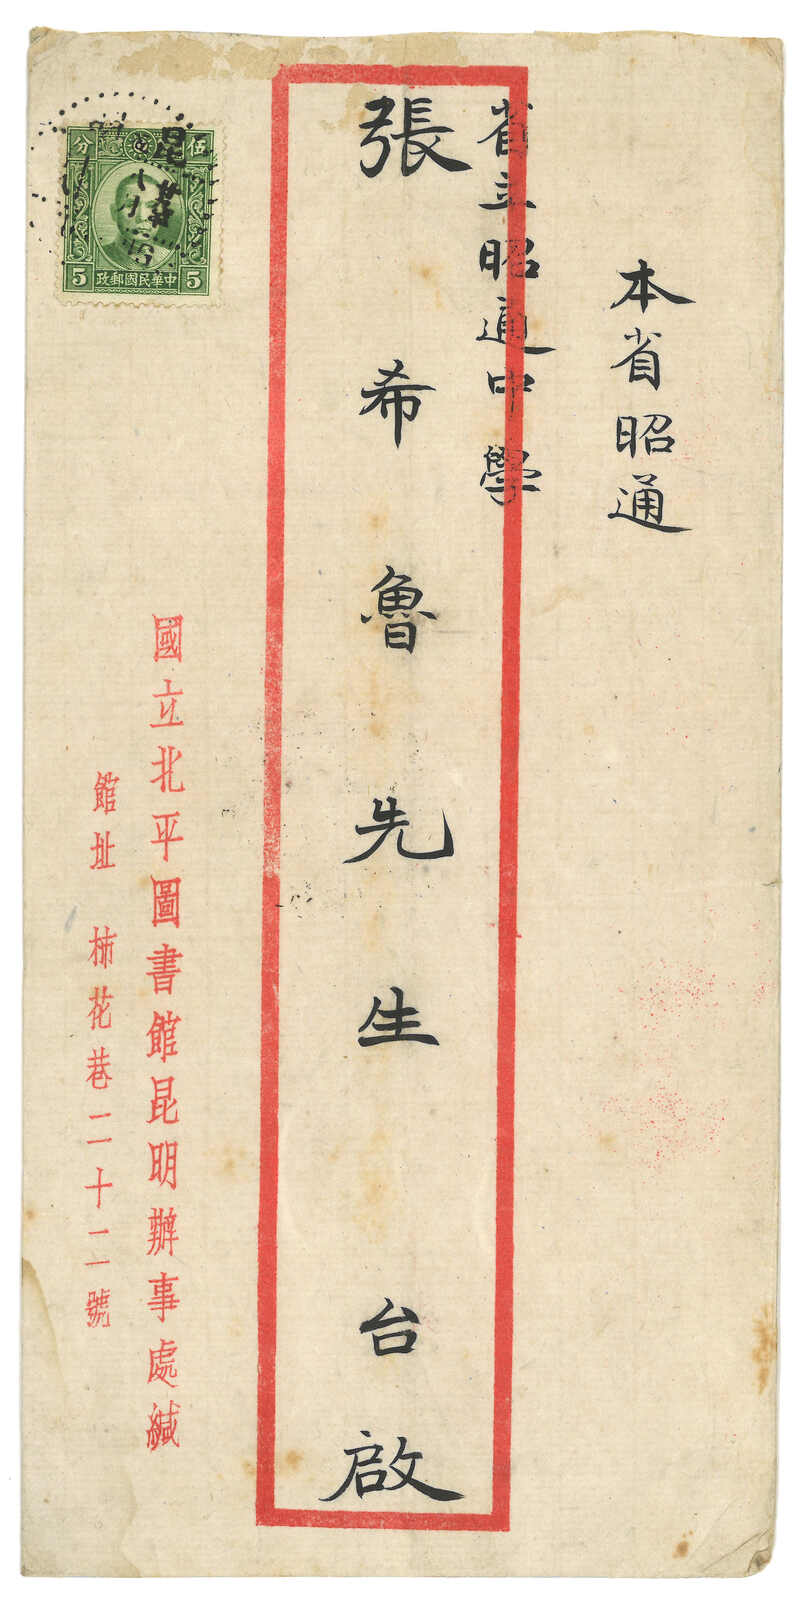 本省昭通
省立昭通中學
張希魯先生台啟
國立北平圖書館昆明辦事處緘
館址 柿花巷二十二號
伍 分
5 中華民國郵政 5
昆